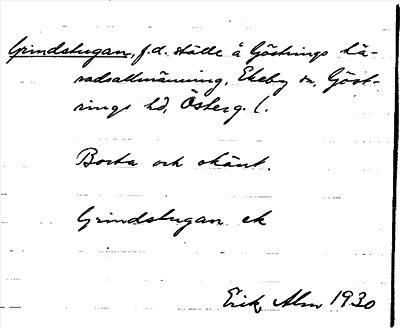 Grindstugan, f.d. ställe å Göstrings hä-
radsallmänning, Ekeby sn, Göst-
rings hd, Österg. l.
Borta och okänt.
Grindstugan ek
Erik Alm 1930